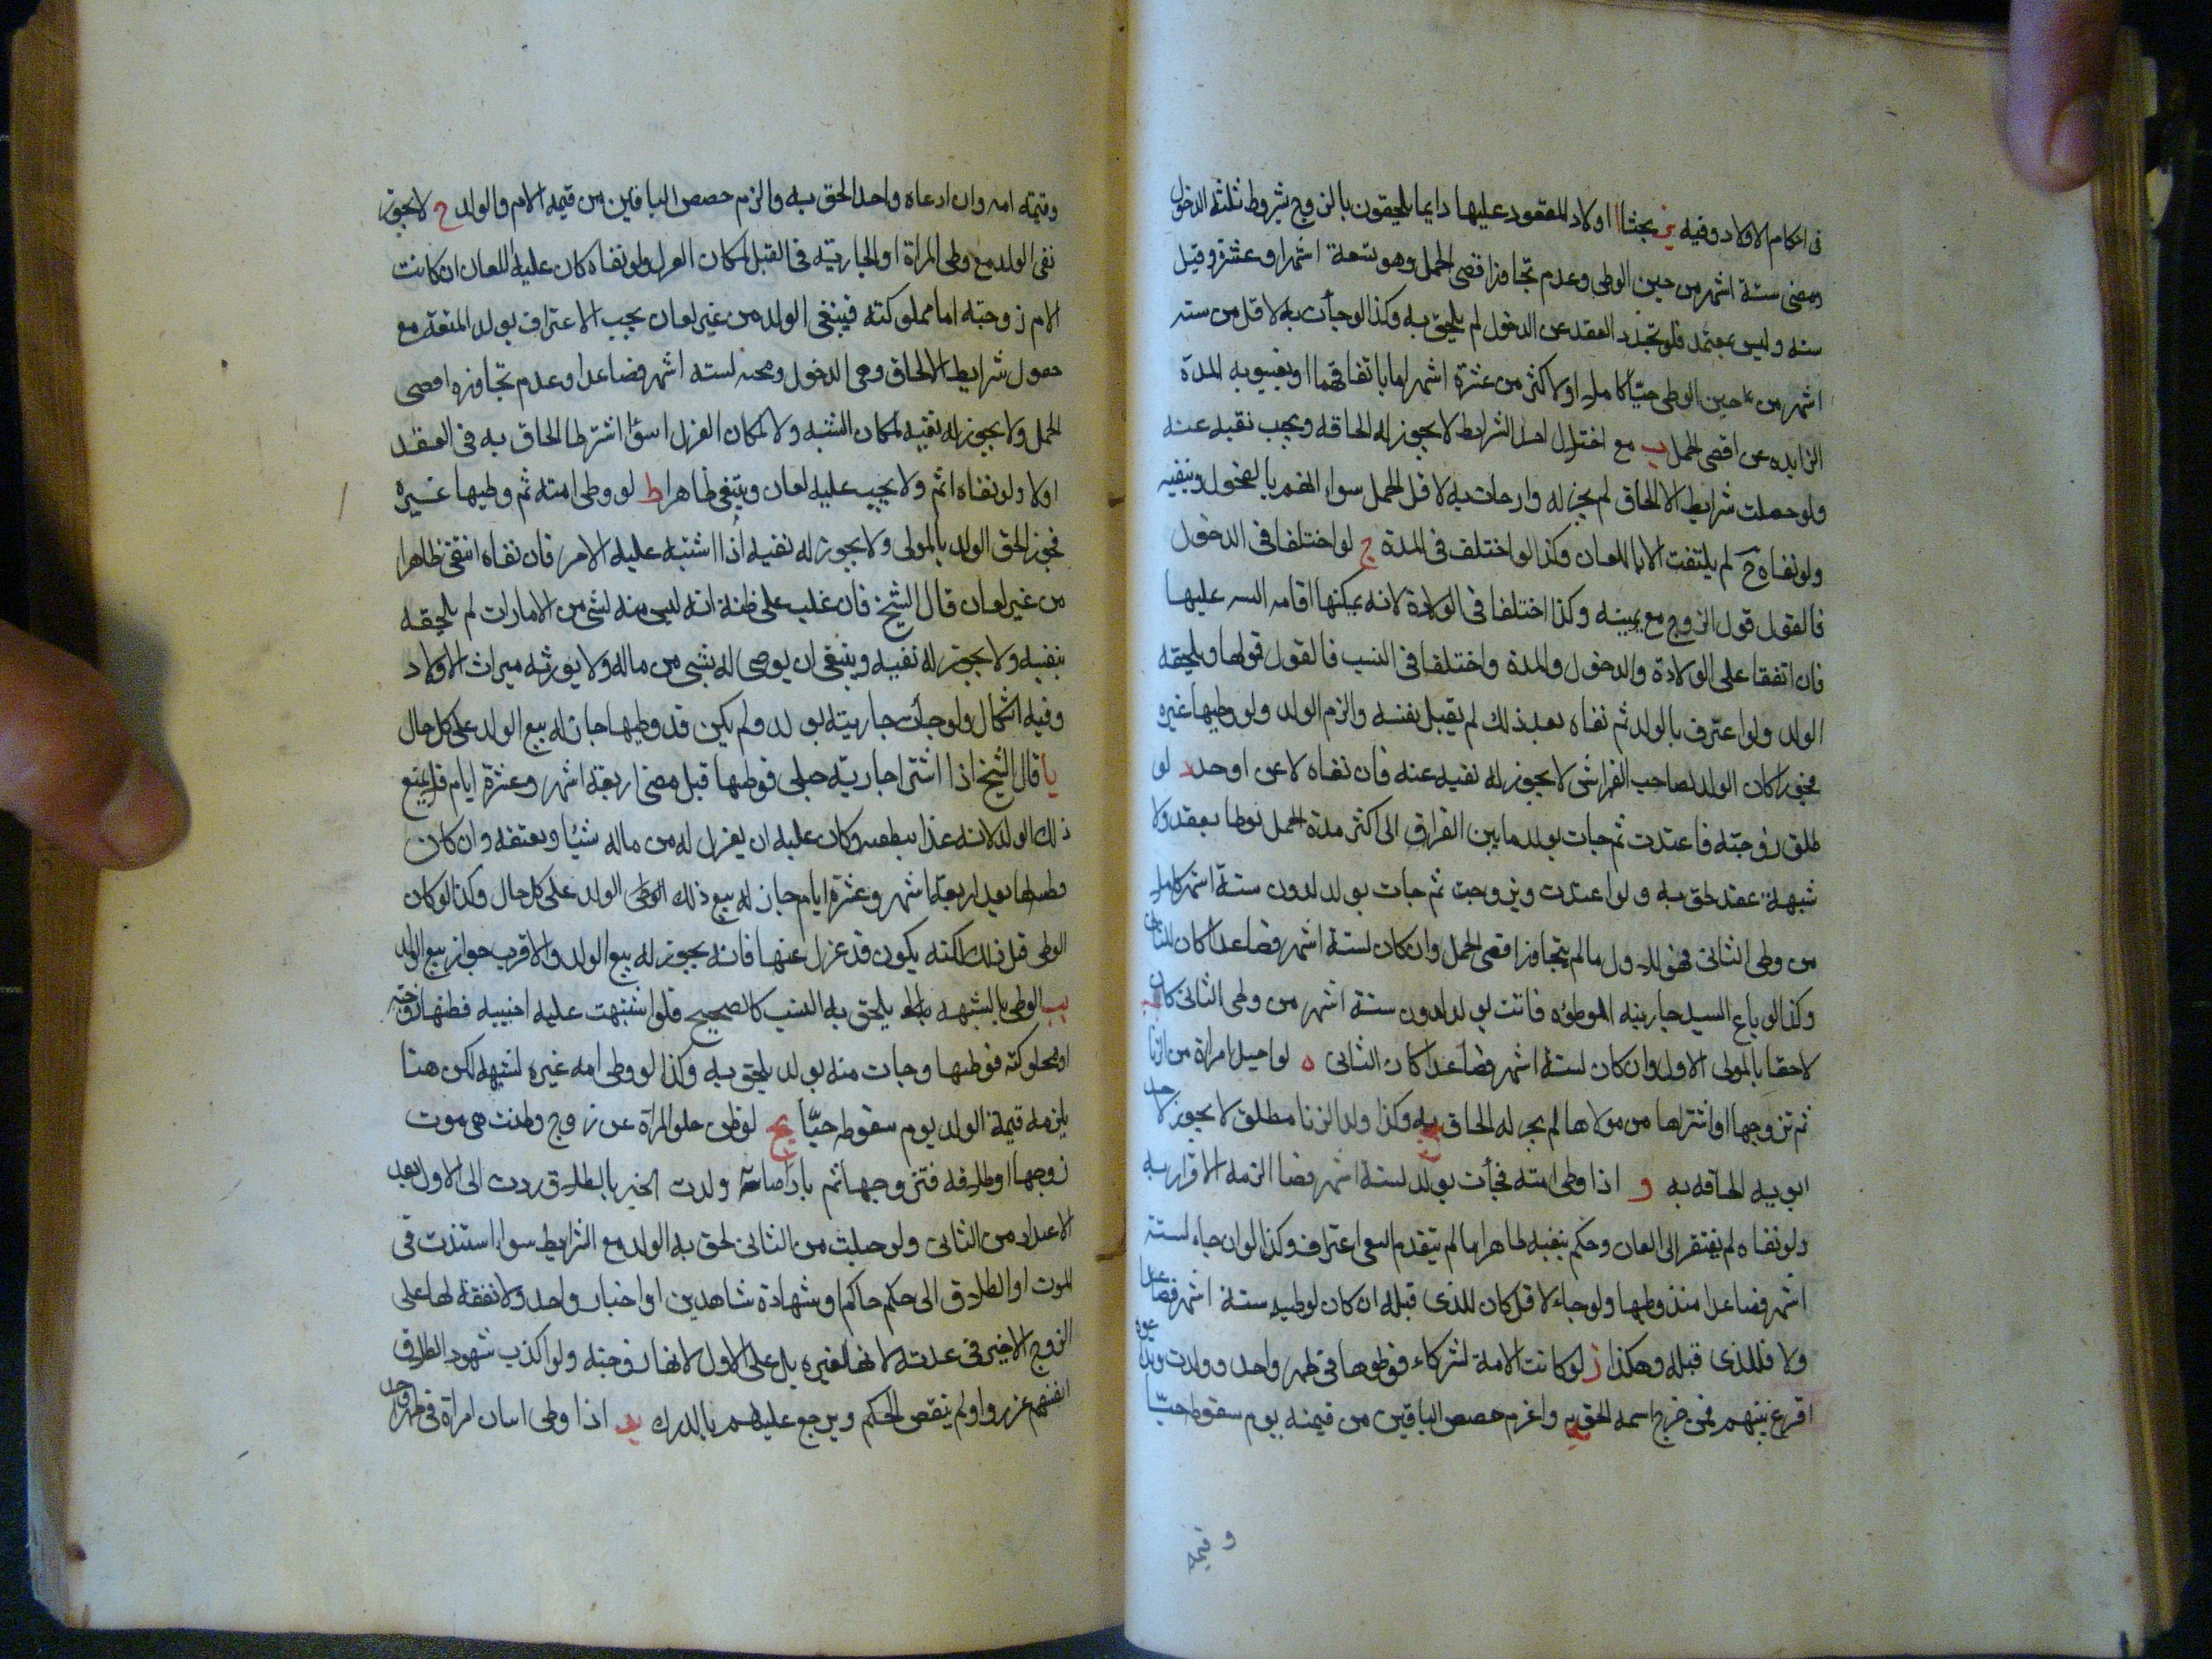 فى احكام الاولاد وفيه بحثا ا اولاد المعقود عليها دايما يلحقون بالزوج بشروط ثلثه الدخول
ومضى ستة اشهر من حين الوطى وعدم تجاوز اقصى الحمل وهو تسعة اشهر او عشرة وقيل
سنه وليس بمعتمد فلو تجرد العقد عن الدخول لم يلحق به وكذا لو جأت به لاقل من سته
اشهر من حين الوطى حيّا كاملا او لاكثر من عشرة اشهر اما باتفاقهما او بغيبوبه المدة
الزايده عن اقصى الحمل ب مع اختلال احد الشرايط لا يجوز له الحاقه ويجب نفيه عنه
ولو حصلت شرايط الالحاق لم يجز له وان جات به لاقل الحمل سواء اتهم بالفجور وبنفيه
ولو نفاه لم يلتفت الا باللعان وكذا لو اختلف فى المدة ج لو اختلفا فى الدخول
فالقول قول الزوج مع يمينه وكذا اختلفا فى الولادة لانه يمكنها اقامه عليها
فان اتفقا على الولادة والدخول والمدة واختلفا فى النسب فالقول قولها ويلحقه
الولد ولو اعترف بالولد ثم نفاه بعد ذلك لم يقبل بفنسه والزم الولد ولو وطيها غيره
فجورا كان الولد لصاحب الفراش لا يجوز له نفيه عنه فان نفاه لاعن او حد د لو
طلق زوجته فاعتدت ثم جات بولد ما بين الفراق الى اكثر مدة الحمل توطا بعقد ولا
شبهة عقد لحق به ولو اعتدت وتزوجت ثم جات بولد لدون ستة اشهر كاملا
من وطى الثانى فهو للاول ما لم يتجاوز اقصى الحمل وان كان لستة اشهر فصاعدا كان للثانى
وكذا لو باع السيد جاريته الموطؤه فاتت بولد لدون ستة اشهر من وطى الثانى كان
لاحقا بالمولى الاول وان كان لستة اشهر فصاعدا كان الثانى ه لو احبل امراة من الزنا
ثم تزوجها او اشتراها من مولاها لم يجز له الحاق به وكذا ولد الزنا مطلق لا يجوز لاحد
ابويه الحاقه به و اذا وطى امته فجأت بولد لستة اشهر فصا الزمه الاقرار به
ولو نفاه لم يفتقر الى العان وحكم بنفيه ظاهرا ما لم يتقدم النفى اعتراف وكذا لو ان جاء لستة
اشهر فصاعدا منذ وطيها ولو جاء لاقل كان للذى قبله ان كان لوطيه ستة اشهر فصاعدا
ولا فللذى قبله وهكذا ز لو كانت الامة لشركاء فوطوها فى طهر واحد وولدت وتداعوه
اقرع بينهم فمن خرج اسمه الحق به واغرم حصص الباقين من قيمته يوم سقوطه حيّا
وقيمة
وقيمته امه وان ادعاه واحد الحق به والزم حصص الباقين من قيمه الام والولد ح لا يجوز
نفى الولد مع وطى المراة او الجاريه فى القبل لمكان العزل ولو نفاه كان عليه اللعان ان كانت
الام زوجته اما مملوكته فينتفى الولد من غير لعان يجب الاعتراف بولد المتعة مع
حصول شرايط الالحاق وهى الدخول لسته اشهر فصاعدا وعدم تجاوزه اقصى
الحمل ولا يجوز له نفيه لمكان الشبه ولا لمكان العزل سؤا اشترط الحاق به فى العقد
اولا ولو نفاه اثم ولا يجب عليه لعان وينتفى ظاهرا ط لو وطى امته ثم وطيها غيره
فجوز الحق الولد بالمولى ولا يجوز له نفيه اذا اشتبه عليه الامر فان نفاه انتفى ظاهرا
من غير لعان قال الشيخ فان غلب على ظنه انه ليس منه لشى من الامارات لم يلحقه
بنفيه ولا يجوز له نفيه وينبغى ان يوصى له بشى من ماله ولا يورثه ميراث الاولاد
وفيه اشكال ولو جأت جاريته بولد ولم يكن قد وطيها جاز له بيع الولد على كل حال
يا قال الشيخ اذا اشترا جاريه حبلى فوطيها قبل مضى اربعة اشهر وعشرة ايام فلا يبيع
ذلك الولد لانه غذا وكان عليه ان يعزل له من ماله شيئا ويعتقه وان كان
وطيها بعد اربعة اشهر وعشرة ايام جاز له بيع ذلك الوطى الولد على كل حال وكذا لو كان
الوطى قبل يكون قد عزل عنها فانه يجوز له بيع الولد والاقرب جواز بيع الولد
يب الوطى بالشبهه يلحق به النسب كالصحيح فلو اشتبهت عليه اجنبيه فظنها زوجته
او مملوكته فوطيها وجات منه بولد يلحق به وكذا لو وطى امه غيره لشبهه لكن هنا
يلزمه قيمة الولد يوم سقوطه حيّا يج لو ظن خلو المرأة عن زوج وظنت هى موت
زوجها او طلاقه فتزوجها ثم بان ولدت الخبر بالطلاق ردت الى الاول بعد
الاعداد من الثانى ولو حبلت من الثانى لحق به الولد مع الشرايط سواء استندت فى
الموت او الطلاق الى حكم حاكم او شهادة شاهدين او اخبار واحد ولا نفقة لها على
الزوج الاخير فى عدته لانها لغيره بل على الاول لانها زوجته ولو اكذب شهود الطلاق
انفسهم عزروا ولم ينقص الحكم ويرجع عليهم بالدرك يد اذا وطى اسان امراة فى طهر واحد